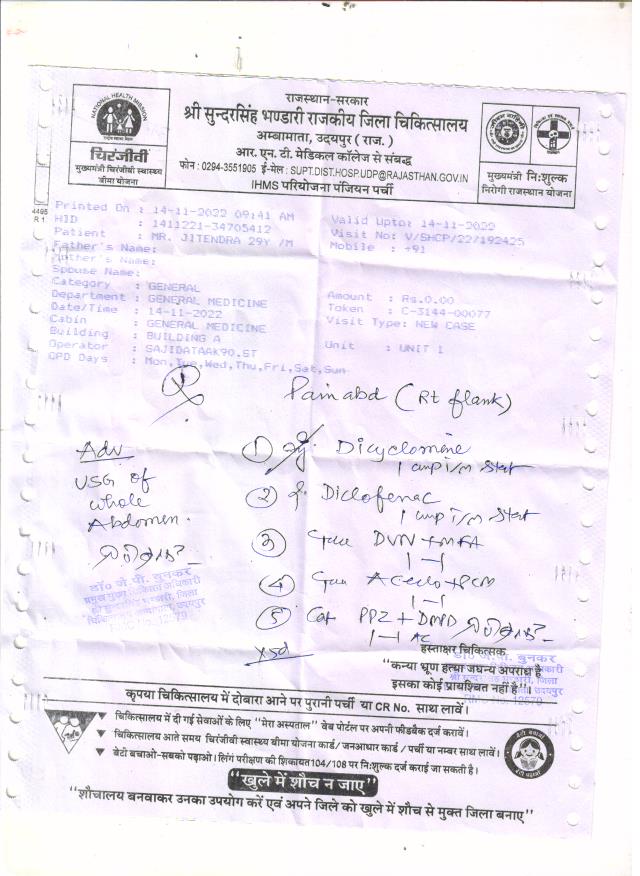 राजस्थान-सरकार
श्री सुन्दरसिंह भण्डारी राजकीय जिला चिकित्सालय
अम्बामाता, उदयपुर ( राज. )
आर. एन. टी. मेडिकल कॉलेज से संबद्ध
फोन : 0294-3551905 ई-मेल : SUPT.DIST.HOSP.UDP@RAJASTHAN.GOV.IN
IHMS परियोजना पंजियन पर्ची
NATIONAL HEALTH MISSION
चिरंजीवी
मुख्यमंत्री चिरंजीवी स्वास्थ्य
बीमा योजना
मुख्यमंत्री निःशुल्क
निरोगी राजस्थान योजना
4495
R 1
Printed On : 14-11-2022 09:41 AM
HID : 1411221-34705412
Patient : MR. JITENDRA 29Y /M
Father's Name:
Mother's Name:
Spouse Name:
Category : GENERAL
Department : GENERAL MEDICINE
Date/Time : 14-11-2022
Cabin : GENERAL MEDICINE
Building : BUILDING A
Operator : SAJIDATAAK90.ST
OPD Days : Mon,Tue,Wed,Thu,Fri,Sat,Sun
Valid Upto: 14-11-2022
Visit No: V/SHCP/22/192425
Mobile : +91
Amount : Rs.0.00
Token : C-3144-00077
Visit Type: NEW CASE
Unit : UNIT 1
Pain abd (Rt flank)
Adv
USG of
whole
Abdomen.
① Dicyclomine
1 amp i/m stat
② Diclofenac
1 amp i/m stat
③ DVN + MFA
1-1
④ Aceclo + PCM
1-1
⑤ Cap PPZ + DMPD
1-1 AC
x5d
डॉ० जे.पी. बुनकर
हस्ताक्षर चिकित्सक
डॉ० जे.पी. बुनकर
"कन्या भ्रूण हत्या जघन्य अपराध है
इसका कोई प्रायश्चित नहीं है"।
कृपया चिकित्सालय में दोबारा आने पर पुरानी पर्ची या CR No. साथ लावें।
चिकित्सालय में दी गई सेवाओं के लिए "मेरा अस्पताल" वेब पोर्टल पर अपनी फीडबैक दर्ज करावें।
चिकित्सालय आते समय चिरंजीवी स्वास्थ्य बीमा योजना कार्ड / जनआधार कार्ड / पर्ची या नम्बर साथ लावें।
बेटी बचाओ-सबको पढ़ाओ। लिंग परीक्षण की शिकायत 104/108 पर निःशुल्क दर्ज कराई जा सकती है।
"खुले में शौच न जाए"
"शौचालय बनवाकर उनका उपयोग करें एवं अपने जिले को खुले में शौच से मुक्त जिला बनाए"